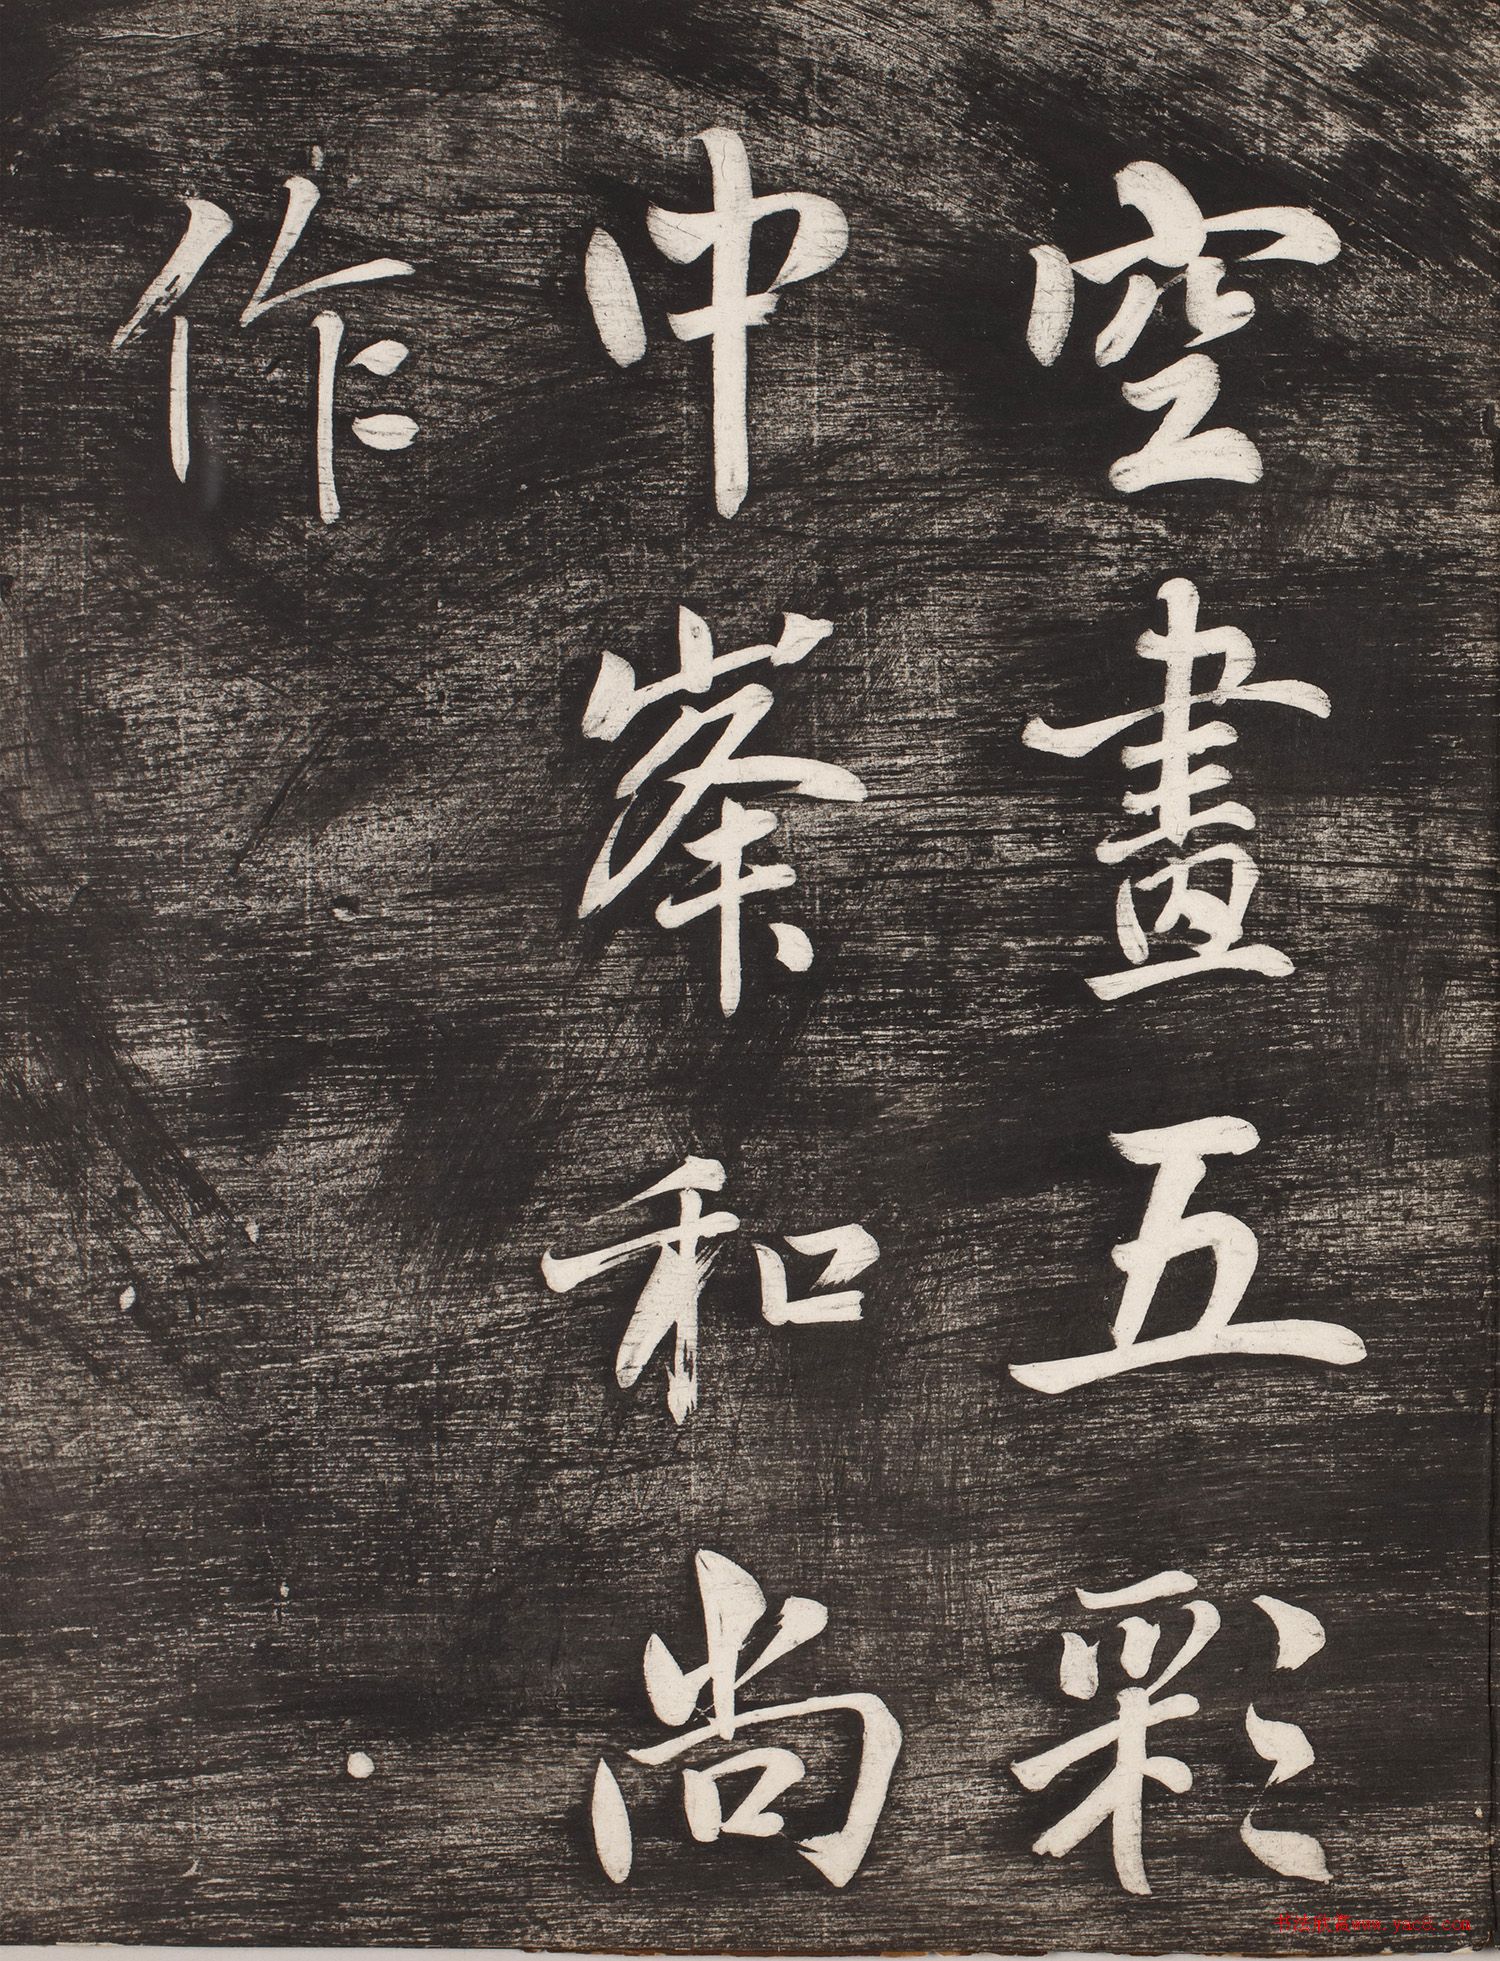 空畫五彩
中峯和尚
作
书法欣赏www.yac8.com